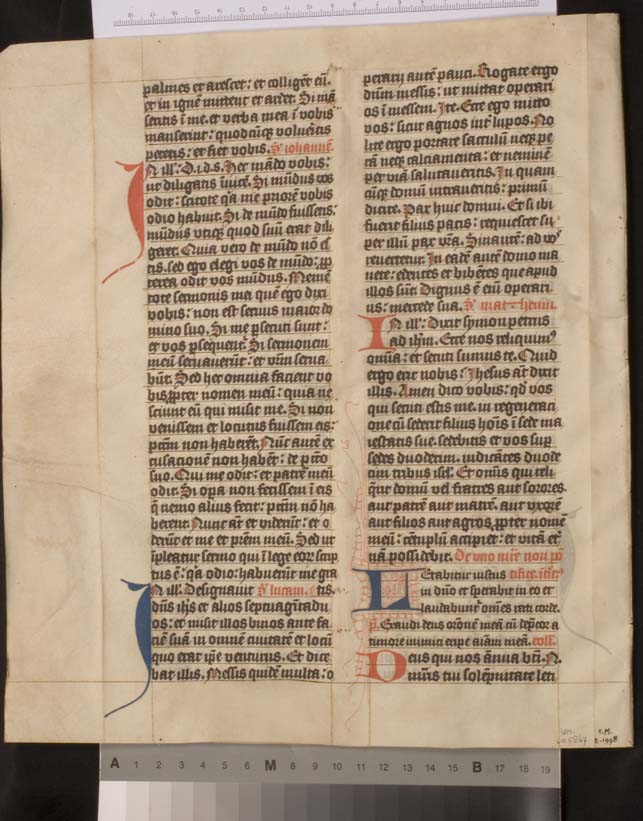 palmes et arescet: et colligēt eū.
et in ignē mittent et ardet. Si mā
seritis ī me. et verba mea ī vobis
manserint: quodcūqꝫ volueritis
petetis: et fiet vobis. Sᵉ iohannē.
IN ill': D. i. d. s. Hec mādo vobis:
ut diligatis īuicē. Si mūdus vos
odit: scitote qʳa me priorē vobis
odio habuit. Si de mūdo fuissetis:
mūdus vtiqꝫ quod suū erat dili
geret. Quia vero de mūdo nō es
tis. sed ego elegi vos de mūdo: ꝓp
terea odit vos mūdus. Memē
tote sermonis mei quē ego dixi
vobis: non est seruus maior do
mino suo. Si me ꝑsecuti sunt:
et vos ꝑsequent'. Si sermonem
meū seruauerūt: et vr̄m serua
būt. Sed hec omnia facient vo
bis ꝓpter nomen meū: quia ne
sciunt eū qui misit me. Si non
venissem et locutus fuissem eis:
pctm̄ non haberēt. Nūc autē ex
cusacionē non habēt: de pctō
suo. Qui me odit: et patrē meū
odit. Si opa non fecissem ī eis
q̄ nemo alius fecit: pctm̄ nō ha
berent. Nunc aūt et viderūt: et o
derūt et me et pr̄em meū. Sed ut
īpleatur sermo qui ī lege eoꝝ scrip
tus ē: qʳa odio habuerūt me gra
IN ill'. Designauit Sᵉ lucam. tis.
dn̄s ih̄s et alios septuagīta du
os: et misit illos binos ante fa
ciē suā in omnē ciuitatē et locū
quo erat ip̄e venturus. Et dice
bat illis. Messis quidē multa: o
perarij autē pauci. Rogate ergo
dn̄m messis: ut mittat operari
os ī messem. Ite. Ecce ego mitto
vos: sicut agnos int' lupos. No
lite ergo portare sacculū neqꝫ pe
rā neqꝫ calciamenta: et neminē
per viā salutaueritis. In quam
cūqꝫ domū intraueritis: primū
dicite. Pax huic domui. Et si ibi
fuerit filius pacis: requiescet su
per illū pax vr̄a. Sin autē: ad vos
reuertetur. In eadē autē domo ma
nete: edentes et bibētes que apud
illos sūt. Dignus ē eī operari
us: mercede sua. Sᵉ mat-theum.
IN ill': Dixit symon petrus
ad ih̄m. Ecce nos reliquimꝰ
omīa: et secuti sumus te. Quid
ergo erit nobis: Ihesus aūt dixit
illis. Amen dico vobis: qd̄ vos
qui secuti estis me. in regeneraci
one cū sederit filius hoīs ī sede ma
iestatis sue. sedebitis et vos suꝑ
sedes duodecim. iudicātes duode
cim tribus isrl'. Et omīs qui reli
q̄rit domū vel fratres aut sorores.
aut patrē aut matrē. aut vxorē
aut filios aut agros ꝓpter nomē
meū: cētuplū accipiet: et vitā et'
nā possidebit. De vno mr̄e non pō
LEtabitur iustus
in dn̄o et sperabit in eo et
laudabunt om̄es recti corde.
p̄. Exaudi deus oronē meā cū dep̄cor a
timore inimici eripe aīam meā. coll'.
Deus qui nos ānua btī. N.
m̄ris tui solēpnitate leti
A 1 2 3 4 5 6 M 8 9 10 11 12 13 14 15 B 17 18 19